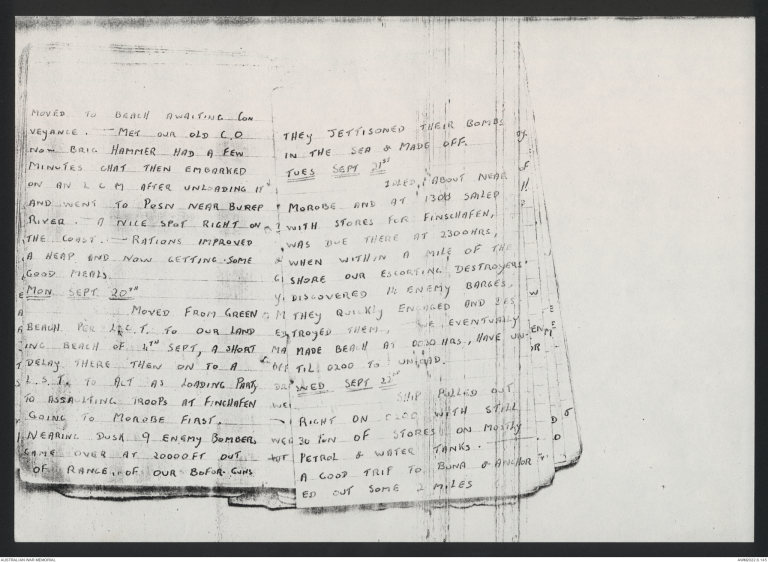 MOVED TO BEACH AWAITING CON
VEYANCE. — MET OUR OLD C.O
NOW BRIG HAMMER HAD A FEW
MINUTES CHAT THEN EMBARKED
ON AN L C M AFTER UNLOADING IT
AND WENT TO POSN NEAR BUREP
RIVER. — A NICE SPOT RIGHT ON
THE COAST. — RATIONS IMPROVED
A HEAP AND NOW GETTING SOME
GOOD MEALS.
MON SEPT 20TH
MOVED FROM GREEN
BEACH PER L.C.T. TO OUR LAND
ING BEACH OF 4TH SEPT, A SHORT
DELAY THERE THEN ON TO A
L.S.T. TO ACT AS LOADING PARTY
TO ASSAULTING TROOPS AT FINCHAFEN
GOING TO MOROBE FIRST.
NEARING DUSK 9 ENEMY BOMBERS
CAME OVER AT 20000FT OUT
OF RANGE. OF OUR BOFOR. GUNS
THEY JETTISONED THEIR BOMBS
IN THE SEA & MADE OFF.
TUES SEPT 21ST
IDLED ABOUT NEAR
MOROBE AND AT 1300 SAILED
WITH STORES FOR FINSCHAFEN,
WAS DUE THERE AT 2300HRS,
WHEN WITHIN A MILE OF THE
SHORE OUR ESCORTING DESTROYERS
DISCOVERED 14 ENEMY BARGES,
THEY QUICKLY ENGAGED AND DES
TROYED THEM, WE EVENTUALLY
MADE BEACH AT HRS, HAVE UN
TIL 0200 TO UNLOAD.
WED SEPT 22ND
SHIP PULLED OUT
RIGHT ON 0200 WITH STILL
30 TON OF STORES ON MOSTLY
PETROL & WATER TANKS.
A GOOD TRIP TO BUNA & ANCHOR
ED OUT SOME 2 MILES
AUSTRALIAN WAR MEMORIAL